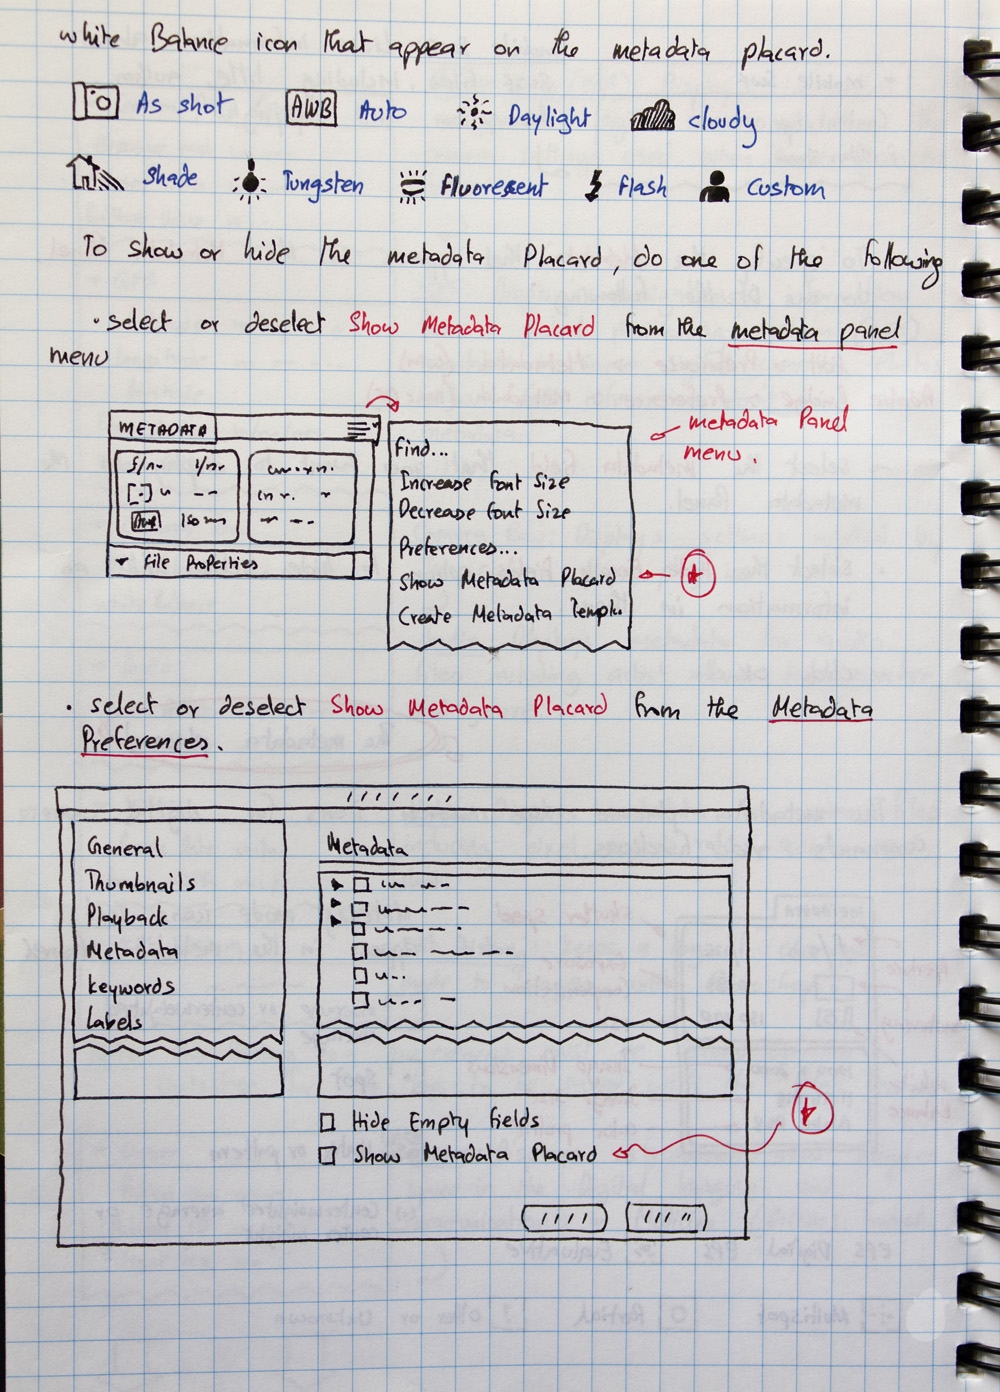 white Balance icon that appear on the metadata placard.
As shot AWB Auto Daylight cloudy
Shade Tungsten Fluorescent Flash Custom
To show or hide the metadata Placard, do one of the following
· select or deselect Show Metadata Placard from the metadata panel
menu
METADATA
File Properties
Find...
Increase Font Size
Decrease Font Size
Preferences...
Show Metadata Placard
Create Metadata Templ.
metadata Panel
menu.
· select or deselect Show Metadata Placard from the Metadata
Preferences.
General
Thumbnails
Playback
Metadata
keywords
Labels
Metadata
Hide Empty fields
Show Metadata Placard